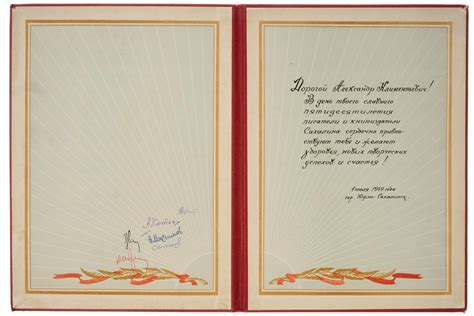 Дорогой Александр Климентьевич!
В день твоего славного
пятидесятилетия
писатели и книгоиздатели
Сахалина сердечно привет-
ствуют тебя и желают
здоровья, новых творческих
успехов и счастья!
1 июля 1969 года
гор. Южно-Сахалинск.